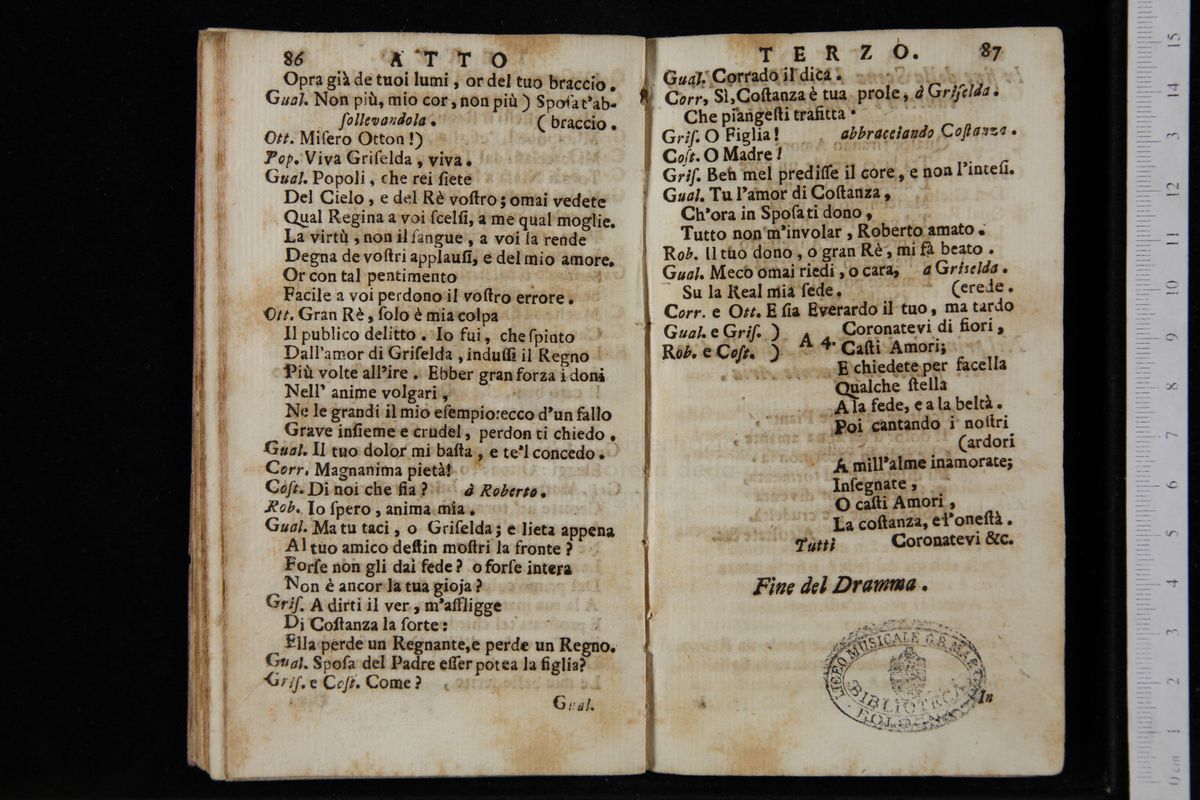 86 ATTO
Opra già de tuoi lumi, or del tuo braccio.
Gual. Non più, mio cor, non più) Spoſa t'ab-
ſollevandola. (braccio.
Ott. Miſero Otton!)
Pop. Viva Griſelda, viva.
Gual. Popoli, che rei ſiete
Del Cielo, e del Rè voſtro; omai vedete
Qual Regina a voi ſcelſi, a me qual moglie.
La virtù, non il ſangue, a voi la rende
Degna de voſtri applauſi, e del mio amore.
Or con tal pentimento
Facile a voi perdono il voſtro errore.
Ott. Gran Rè, ſolo è mia colpa
Il publico delitto. Io fui, che ſpinto
Dall'amor di Griſelda, induſſi il Regno
Più volte all'ire. Ebber gran forza i doni
Nell' anime volgari,
Ne le grandi il mio eſempio: ecco d'un fallo
Grave inſieme e crudel, perdon ti chiedo.
Gual. Il tuo dolor mi baſta, e te'l concedo.
Corr. Magnanima pietà!
Coſt. Di noi che ſia? à Roberto.
Rob. Io ſpero, anima mia.
Gual. Ma tu taci, o Griſelda; e lieta appena
Al tuo amico deſtin moſtri la fronte?
Forſe non gli dai fede? o forſe intera
Non è ancor la tua gioja?
Griſ. A dirti il ver, m'affligge
Di Coſtanza la ſorte:
Ella perde un Regnante, e perde un Regno.
Gual. Spoſa del Padre eſſer potea la figlia?
Griſ. e Coſt. Come?
Gual.
TERZO. 87
Gual. Corrado il dica.
Corr, Sì, Coſtanza è tua prole, à Griſelda.
Che piangeſti trafitta.
Griſ. O Figlia! abbracciando Coſtanza.
Coſt. O Madre!
Griſ. Ben mel prediſſe il core, e non l'inteſi.
Gual. Tu l'amor di Coſtanza,
Ch'ora in Spoſa ti dono,
Tutto non m'involar, Roberto amato.
Rob. Il tuo dono, o gran Rè, mi fà beato.
Gual. Meco omai riedi, o cara, a Griselda.
Su la Real mia ſede. (erede.
Corr. e Ott. E ſia Everardo il tuo, ma tardo
Gual. e Griſ. ) Coronatevi di fiori,
Rob. e Coſt. ) A 4. Caſti Amori;
E chiedete per facella
Qualche ſtella
A la fede, e a la beltà.
Poi cantando i noſtri
(ardori
A mill'alme inamorate;
Inſegnate,
O caſti Amori,
La coſtanza, e l'oneſtà.
Tutti Coronatevi &c.
Fine del Dramma.
LICEO MUSICALE G. B. MARTINI
BIBLIOTECA
BOLOGNA
In
0 cm 1 2 3 4 5 6 7 8 9 10 11 12 13 14 15